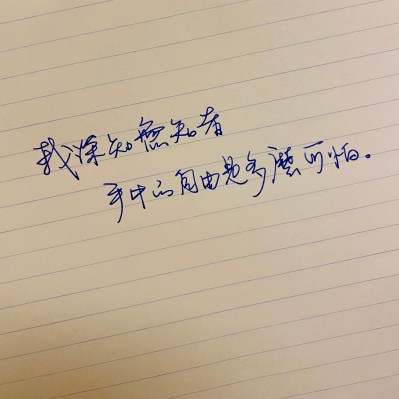 我深知無知者
手中的自由是多麽可怕。